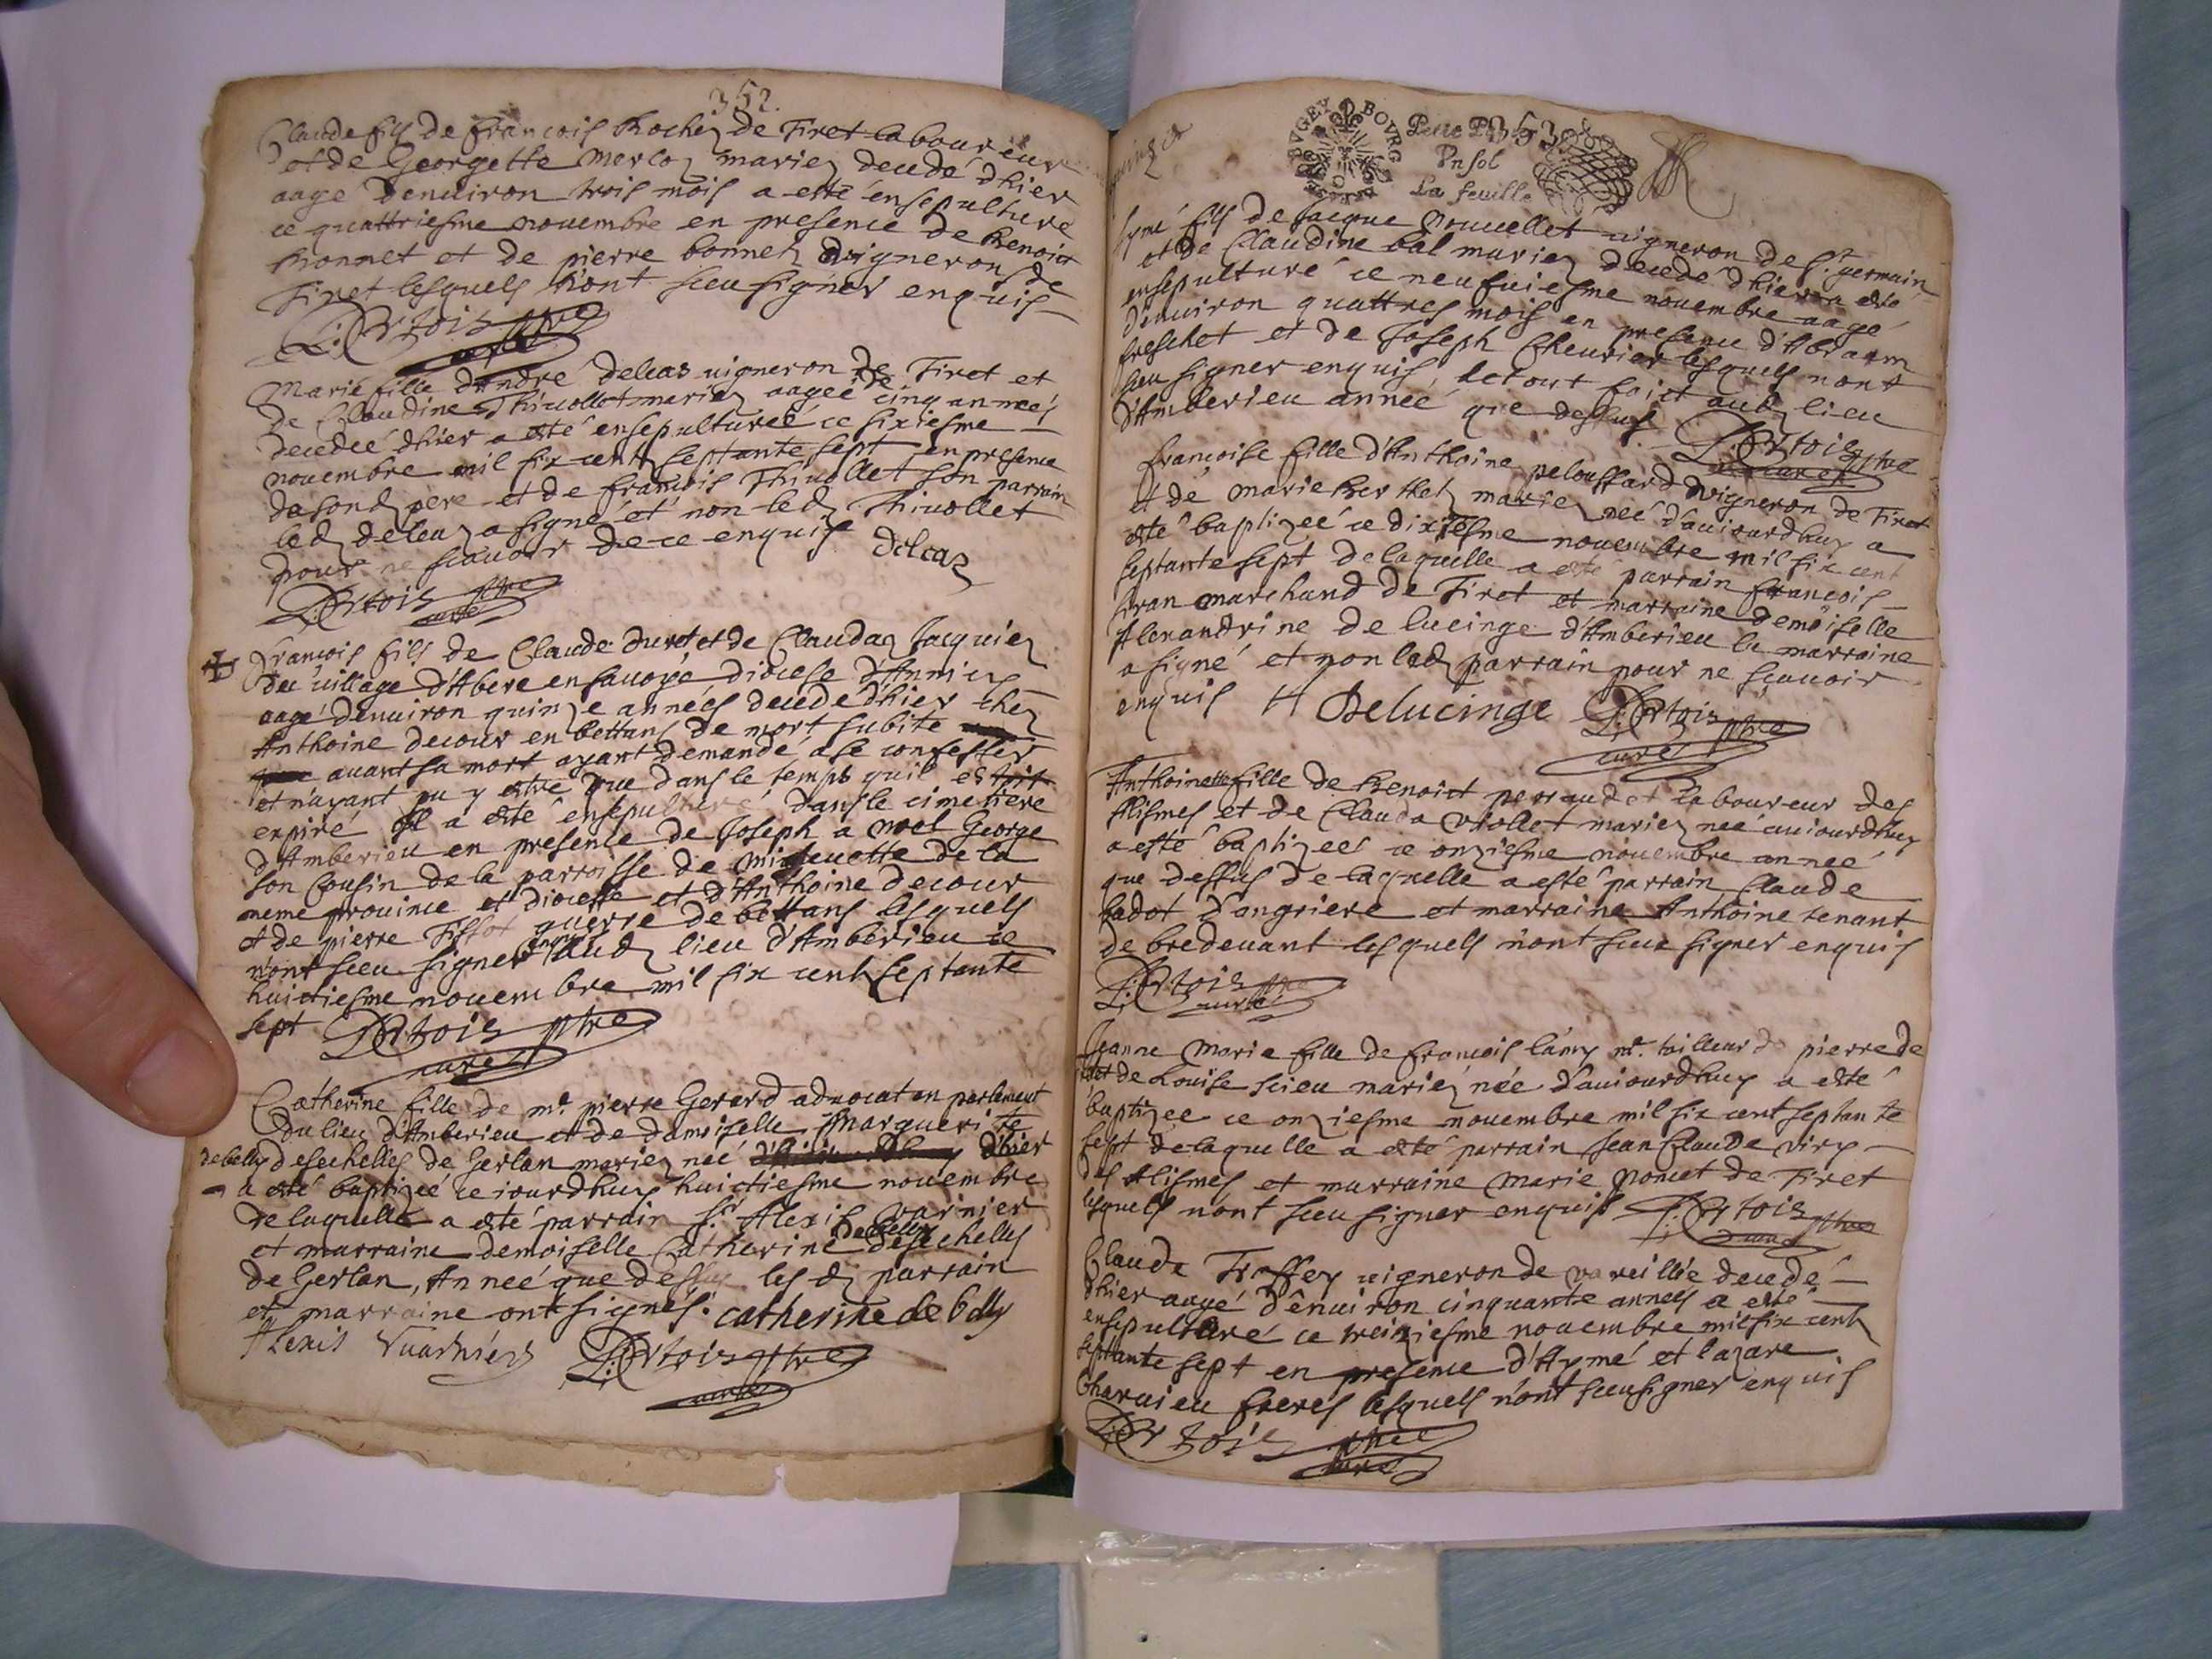 352.
Claude fils de françois Rochez de Tiret laboureur
et de Georgette mercoz mariez decedé dhier
aagé denuiron trois mois a esté ensepulturé
ce quattriesme nouembre en presence de Benoict
bonnet et de pierre bonnet vigneron de
Tiret lesquels n'ont sceu signer enquis
Artois ptre
curé
Marie fille dandré delcas uigneron de Tiret et
de Claudine Thiuollet mariez aageé de cinq anneés
decedeé dhier a esté ensepultureé ce sixiesme
nouembre mil six cent septante sept en presence
de sond pere et de françois Thiuollet son parrain
led delcaz a signé et non led Thiuollet
pour ne scauoir de ce enquis delcaz
Artois ptre
curé
françois fils de Claude Duret et de Claudaz Jacquiez
du uillage d'Abere en sauoye diocese d'Annicy
aagé denuiron quinze anneés decedé dhier chez
Anthoine decour en bettans de mort subite
auant sa mort ayant demandé a se confesser
et n'ayant pu y estre que dans le temps quil estoit
expiré Il a esté ensepulturé dans le cimetiere
d'Amberieu en presence de Joseph a noel George
son Cousin de la parroisse de de la
meme prouince et diocesse et d'Anthoine decour
et de pierre Tissot guerre de bettans lesquels
n'ont sceu signer enquis aud lieu d'Amberieu ce
huictiesme nouembre mil six cent septante
sept Artois ptre
curé
Catherine fille de me. pierre Gerard aduocat en parlement
du lieu d'Amberieu et de damoiselle Marguerite
debelly desechelles de Gerlan mariez neé dhier
a esté baptizeé ce iourdhuy huictiesme nouembre
de laquelle a esté parrain sr. Alexis varnier
et marraine demoiselle Catherine debelly desechelles
de Gerlan, Anneé que dessus les d parrain
et marraine ont signés. catherine de belly
Alexis Vuarniers Artois ptre
curé
BVGEY BOVRG
353
Un sol
La feuille
Aymé fils de Jacque nouuellet uigneron de St. germain
et de Claudine bal mariez decedé dhier a esté
ensepulturé ce neufuiesme nouembre aagé
denuiron quattres mois en presence d'Abraam
freschet et de Joseph Cheurier lesquels nont
sceu signer enquis, le tout faict aud lieu
d'Amberieu anneé que dessus Artois ptre
curé
françoise fille d'Anthoine peloussard vigneron de Tiret
et de marie Berthet mariez neé d'auiourdhuy a
esté baptizeé ce dixiesme nouembre mil six cent
septante sept de laquelle a esté parrain françois
Gran marchand de Tiret et marraine demoiselle
Alexandrine de lucinge d'Amberieu la marraine
a signé et non led parrain pour ne sçauoir
enquis H Delucinge Artois ptre
curé
Anthoinette fille de Benoict perraudet laboureur des
Alismes et de Clauda violet mariez neé auiourdhuy
a esté baptizeé ce onziesme nouembre anneé
que dessus de laquelle a esté parrain Claude
badot d'angriere et marraine Anthoine tenant
de bredeuant lesquels n'ont sceu signer enquis
Artois ptre
curé
Jeanne Marie fille de françois lamy me. tailleur de pierre de
et de Louise scieu mariez née d'auiourdhuy a esté
baptizeé ce onziesme nouembre mil six cent septante
sept de laquelle a esté parrain Jean Claude viry
des Alismes et marraine Marie poncet de Tiret
lesquels n'ont sceu signer enquis Artois ptre
curé
Claude Traffey uigneron de vareillie decedé
dhier aagé d'enuiron cinquante anneés a esté
ensepulturé ce treiziesme nouembre mil six cent
septante sept en presence d'Aymé et lazare
Charuieu freres lesquels n'ont sceu signer enquis
Artois ptre
curé